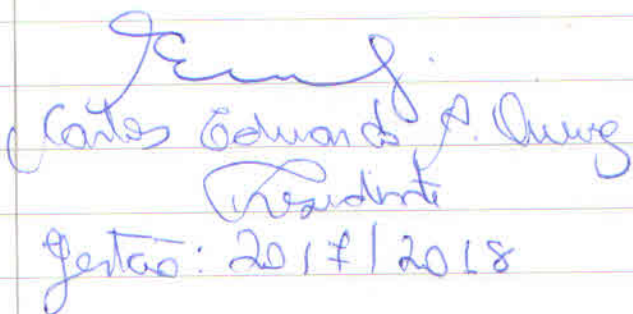 Carlos Eduardo A.
Presidente
Gestão: 2017/2018